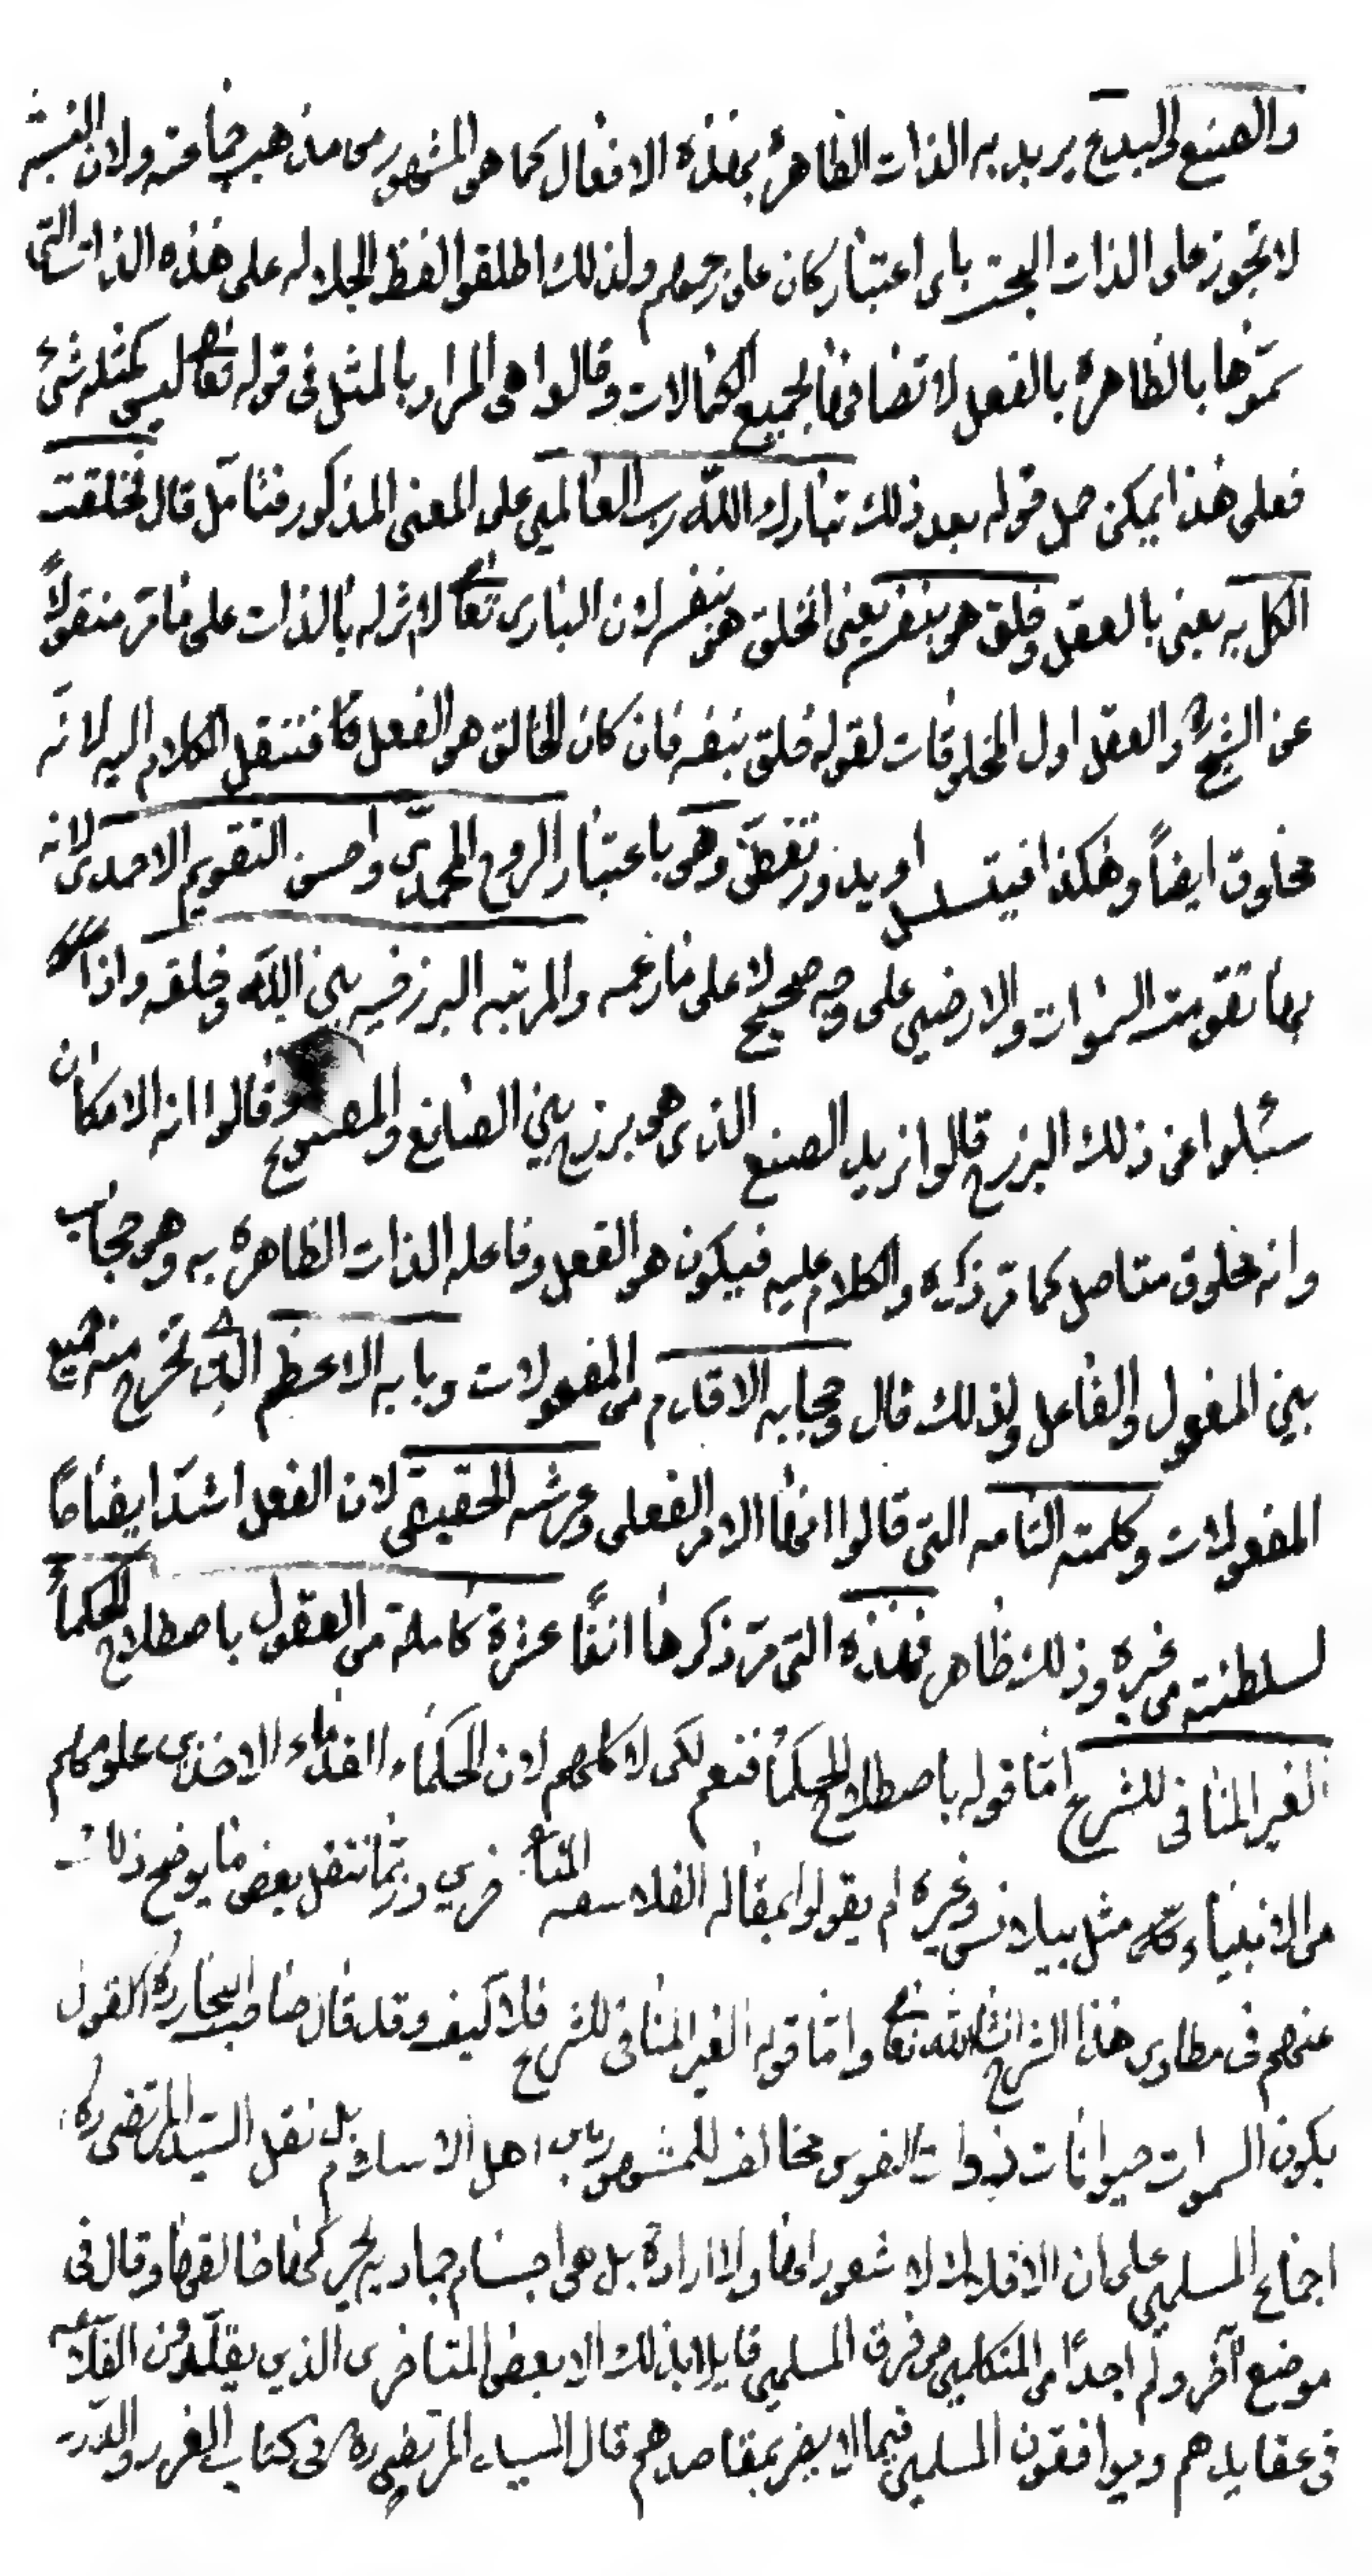 والصنع البديع يريد به الذات الظاهرة بهذه الافعال كما هو المشهور من مذهب جماعته ولان النسبة
لا تجوز على الذات البحت باى اعتبار كان على زعمهم ولذلك اطلقوا لفظ الجلاله على هذه الذات التى
سمّوها بالظاهرة بالفعل لاتصافها بجميع الكمالات وقالوا هى المراد بالمثل فى قوله تعا ليس كمثله شئ
فعلى هذا يمكن حمل قوله بعد ذلك تبارك الله رب العالمين على المعنى المذكور فتامّل قال فخلقت
الكل به يعنى بالعقل وخلق هو بنفسه يعنى الخلق هو بنفسه لان البارى تعا لا اثر له بالذات على ما مرّ منقولاً
عن الشيخ والعقل اول المخلوقات لقوله خلق بنفسه فان كان الخالق هو الفعل فننقل الكلام اليه لانّه
مخلوق ايضاً وهكذا فيتسلسل او يدور تفطّن وهو باعتبار الروح المحمدى واحسن التقويم الاحمدى لانه
بها تقومت السموات والارضين على وجه صحيح لا على ما زعمه والمرتبه البرزخيه بين الله وخلقه واذا
سئلوا عن ذلك البرزخ قالوا نريد الصنع الذى هو برزخ بين الصانع والمصنوع وقالوا انه الامكان
وانه مخلوق متاصل كما مرّ ذكره والكلام عليه فيكون هو الفعل وفاعله الذات الظاهرة به وهو حجاب
بين المفعول والفاعل ولذلك قال وحجابه الاقدم من المفعولات وبابه الاعظم الذى تخرج منه جميع
المفعولات وكلمته التامه التى قالوا انها الامر الفعلى وعرشه الحقيقى لان الفعل اشدّ ايضاحاً
لسلطنته من غيره وذلك ظاهر فهذه التى مرّ ذكرها انفاً عشرة كاملة من العقول باصطلاح الحكماء
الغير المنافى للشرع امّا قوله باصطلاح الحكماء فنعم لكن لا كلهم لان الحكماء القدماء الاخذين علومهم
من الانبياء مثل بيلانس وغيره لم يقولوا بمقاله الفلاسفه المتاخرين وربّما ننقل بعض ما يوضح ذلك
عنهم فى مطاوى هذا الشرح انشاء الله تعا وامّا قوله الغير المنافى للشرع فلا كيف وقد قال صاحب البحار ره القول
بكون السموات حيوانات ذوات نفوس مخالف للمشهور بين اهل الاسلام بل نقل السيد المرتضى ره
اجماع المسلمين على ان الافلاك لا شعور لها ولا ارادة بل هى اجسام جماديه يحركها خالقها وقال فى
موضع آخر ولم اجد احدًا من المتكلمين من فرق المسلمين قايلا بذلك الا بعض المتاخرين الذين يقلّدون الفلاسفه
فى عقايدهم ويوافقون المسلمين فيما لا يضر بمقاصدهم قال السيد المرتضى ره فى كتاب الغرر والدرر